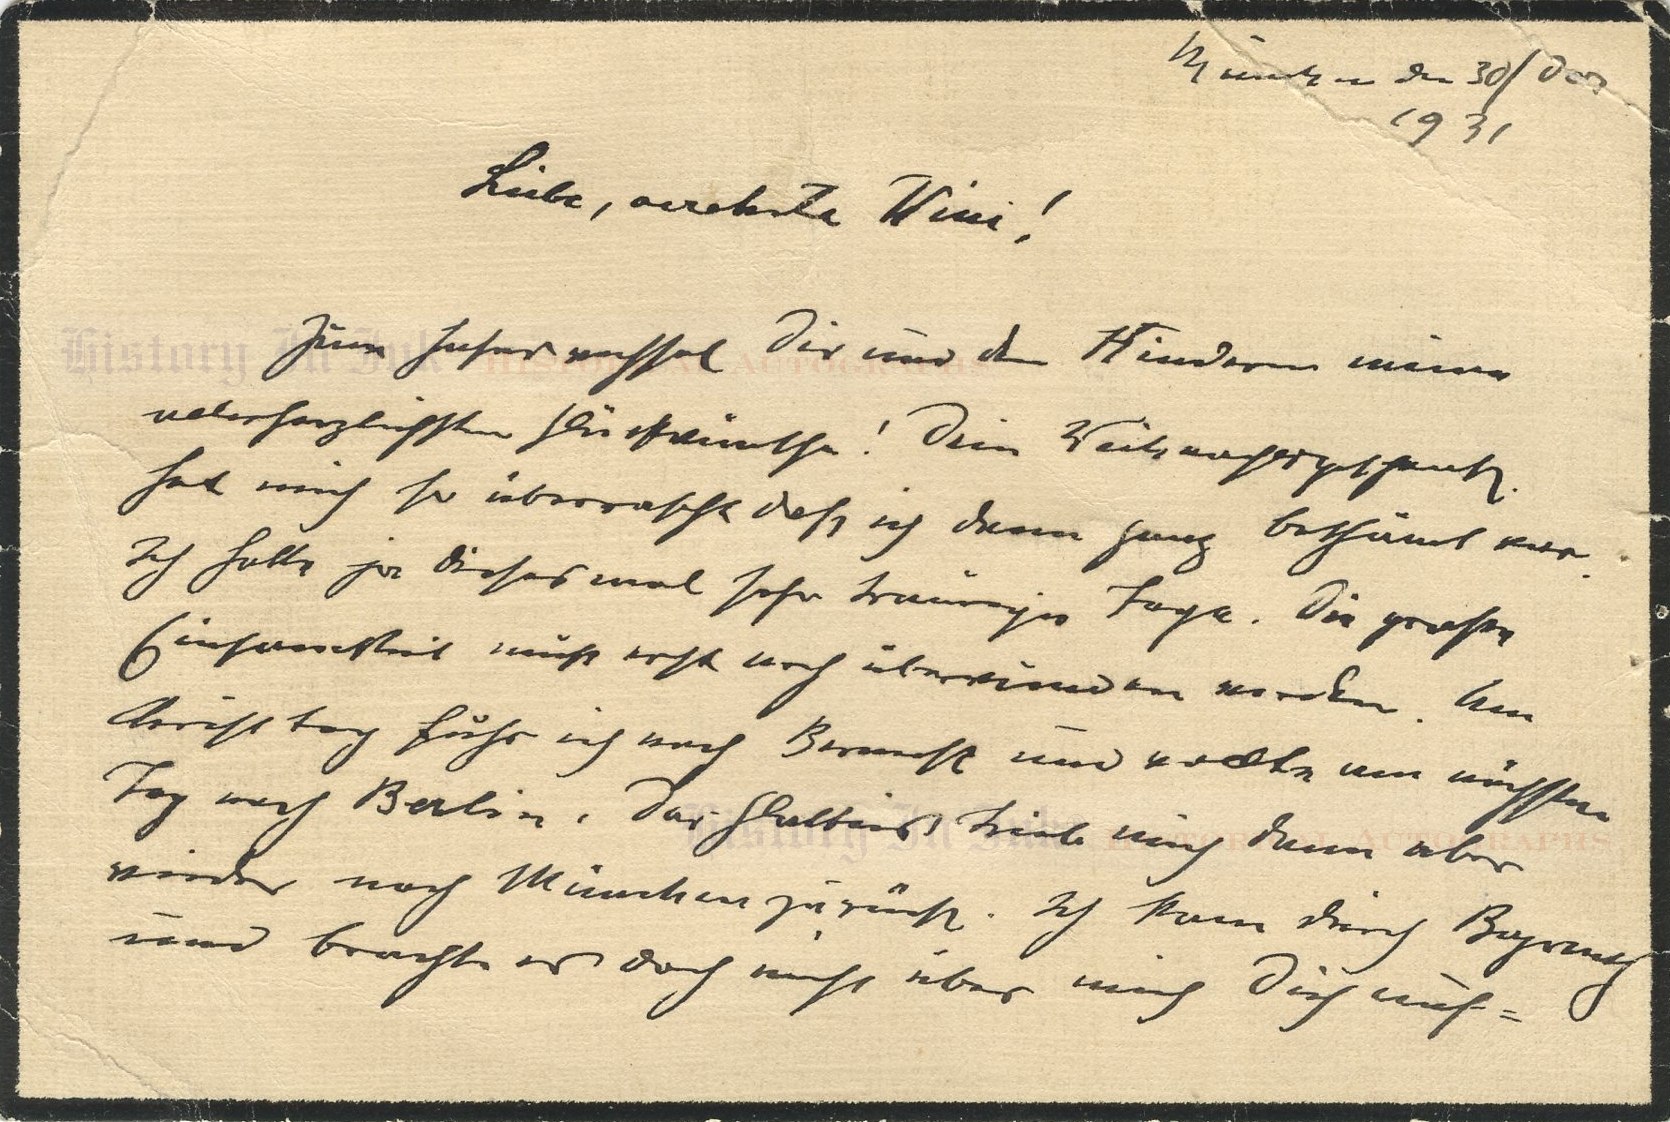 München den 30/Dez
1931
Liebe, verehrte Wini!
Zum Jahreswechsel Dir und den Kindern meine
allerherzlichsten Glückwünsche! Dein Weihnachtsgeschenk
hat mich so überrascht daß ich dann ganz beschämt war.
Ich hatte ja diesesmal sehr traurige Tage. Die große
Einsamkeit muß erst noch überwunden werden. Am
Christtag fuhr ich nach und wollte am nächsten
Tag nach Berlin. Das Glatteis trieb mich dann aber
wieder nach München zurück. Ich kam durch Bayreuth
und brachte es doch nicht über mich Dich auf=
History In Ink HISTORICAL AUTOGRAPHS
History In Ink HISTORICAL AUTOGRAPHS